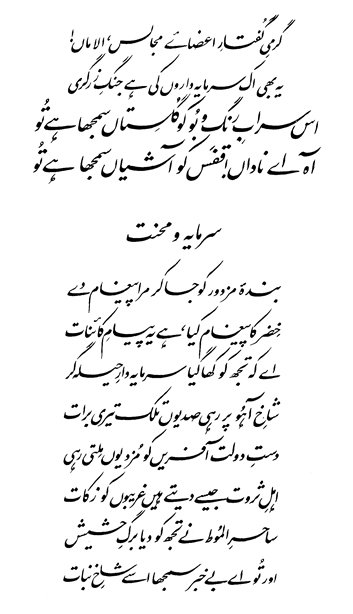 گرمیِ گفتارِ اعضائے مجالس، الاماں!
یہ بھی اک سرمایہ داروں کی ہے جنگِ زرگری
اس سرابِ رنگ و بو کو گلستاں سمجھا ہے تُو
آہ اے ناداں! قفس کو آشیاں سمجھا ہے تُو
سرمایہ و محنت
بندۂ مزدور کو جا کر مرا پیغام دے
خضر کا پیغام کیا، ہے یہ پیامِ کائنات
اے کہ تجھ کو کھا گیا سرمایہ دارِ حیلہ گر
شاخِ آہو پر رہی صدیوں تلک تیری برات
دستِ دولت آفریں کو مُزد یوں مِلتی رہی
اہلِ ثروت جیسے دیتے ہیں غریبوں کو زکات
ساحرِ الموُط نے تجھ کو دیا برگِ حشیش
اور تُو اے بے خبر سمجھا اسے شاخِ نبات